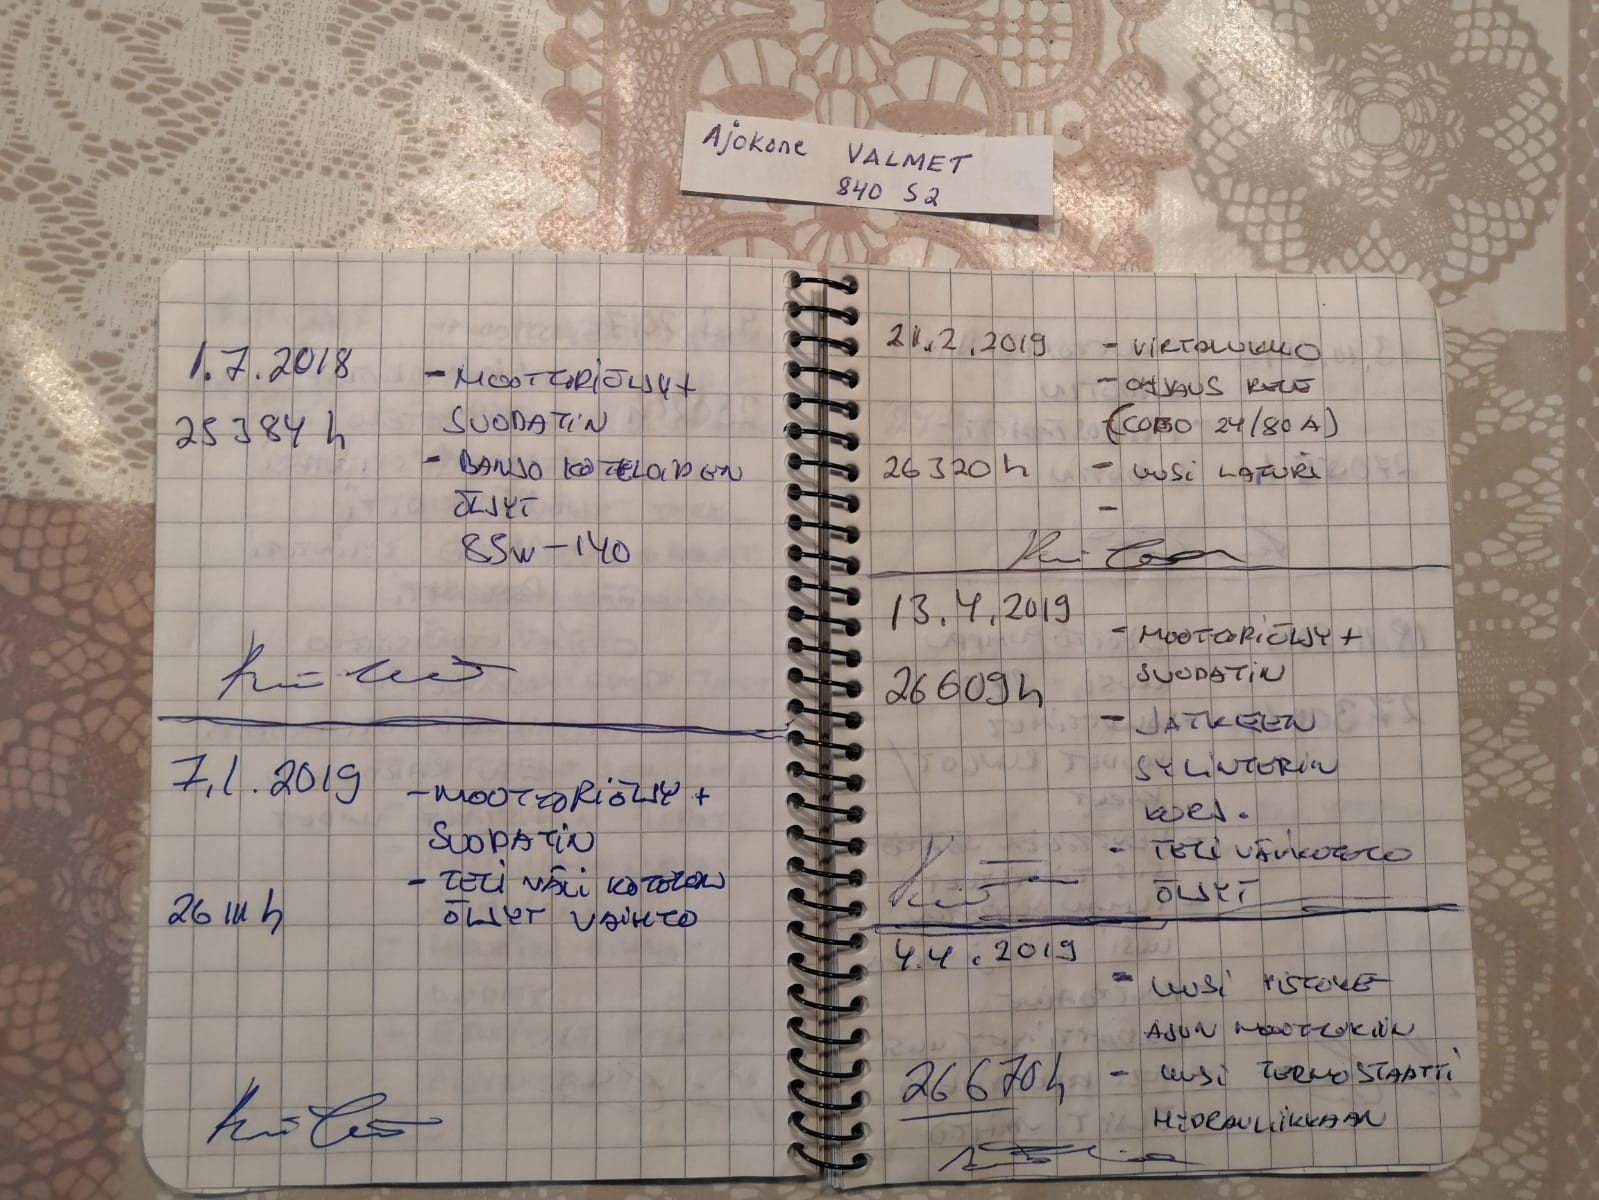 Ajokone VALMET
840 S2
1.7.2018
- MOOTTORIÖLJY +
25384 h
SUODATIN
- BANJO KOTELOIDEN
ÖLJYT
85W-140
7.1.2019
- MOOTTORIÖLJY +
SUODATIN
- TELI VÄLI KOTELON
26111 h
ÖLJYT VAIHTO
21.2.2019
- VIRTALUKKO
- OHJAUS RELE
(COBO 24/80A)
26320 h
- UUSI LATURI
-
13.4.2019
- MOOTTORIÖLJY +
26609 h
SUODATIN
- JATKEEN
SYLINTERIN
KORJ.
- TELI VÄLIKOTELO
ÖLJYT
4.4.2019
- UUSI PISTOKE
AJON MOOTTORIIN
26670 h
- UUSI TERMOSTAATTI
HIDRAULIIKKAAN